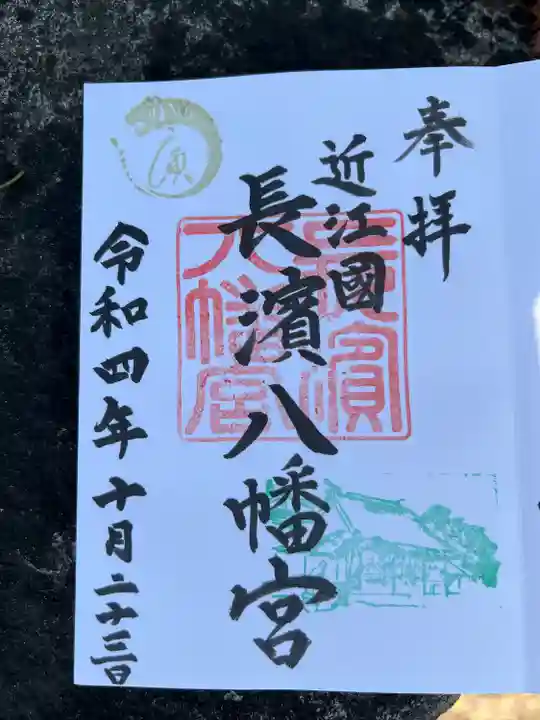 奉拝
近江國
長濱八幡宮
長濱八幡宮
令和四年十月二十三日